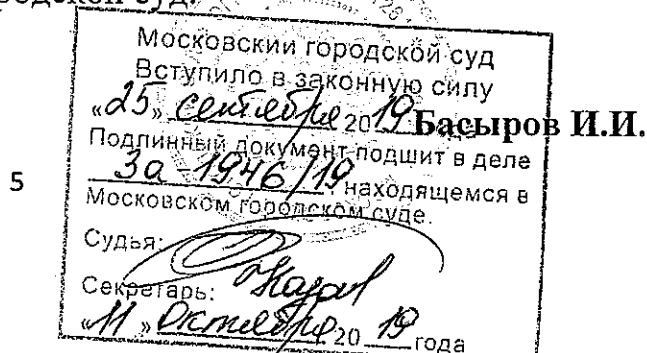 суд.
Московский городской суд
Вступило в законную силу
«25» сентября 2019 года Басыров И.И.
Подлинный документ подшит в деле
3а-1946/19 находящемся в
5
Московском городском суде.
Судья:
Секретарь:
«11» октября 20 19 года